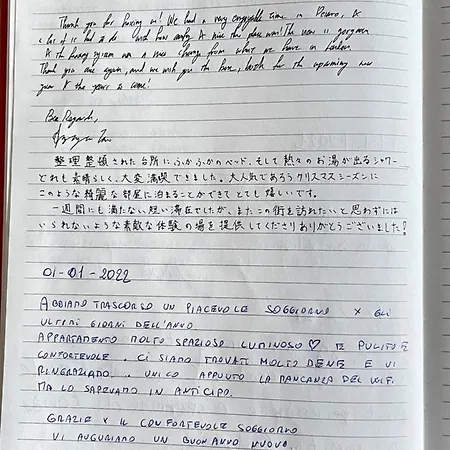 Thank you for having us! We had a very enjoyable time in
A the heating system was a nice change from what we have in London.
Thank you once again, and we wish you the best, both for the upcoming new
year & the years to come!
Best Regards,
整理整頓された台所にふかふかのベッド、そして熱々のお湯が出るシャワー
どれも素晴らしく、大変満喫できました。大人気であろうクリスマスシーズンに
このような綺麗な部屋に泊まることができてとても嬉しいです。
一週間にも満たない短い滞在でしたが、またこの街を訪れたいと思わずには
いられないような素敵な体験の場を提供してくださりありがとうございました!
01-01-2022
ABBIAMO TRASCORSO UN PIACEVOLE SOGGIORNO X GLI
ULTIMI GIORNI DELL'ANNO.
APPARTAMENTO MOLTO SPAZIOSO LUMINOSO ♡ E PULITO E
CONFORTEVOLE. CI SIAMO TROVATI MOLTO BENE E VI
RINGRAZIAMO. UNICO APPUNTO LA MANCANZA DEL WIFI
MA LO SAPEVAMO IN ANTICIPO.
GRAZIE X IL CONFORTEVOLE SOGGIORNO
VI AUGURIAMO UN BUON ANNO NUOVO.